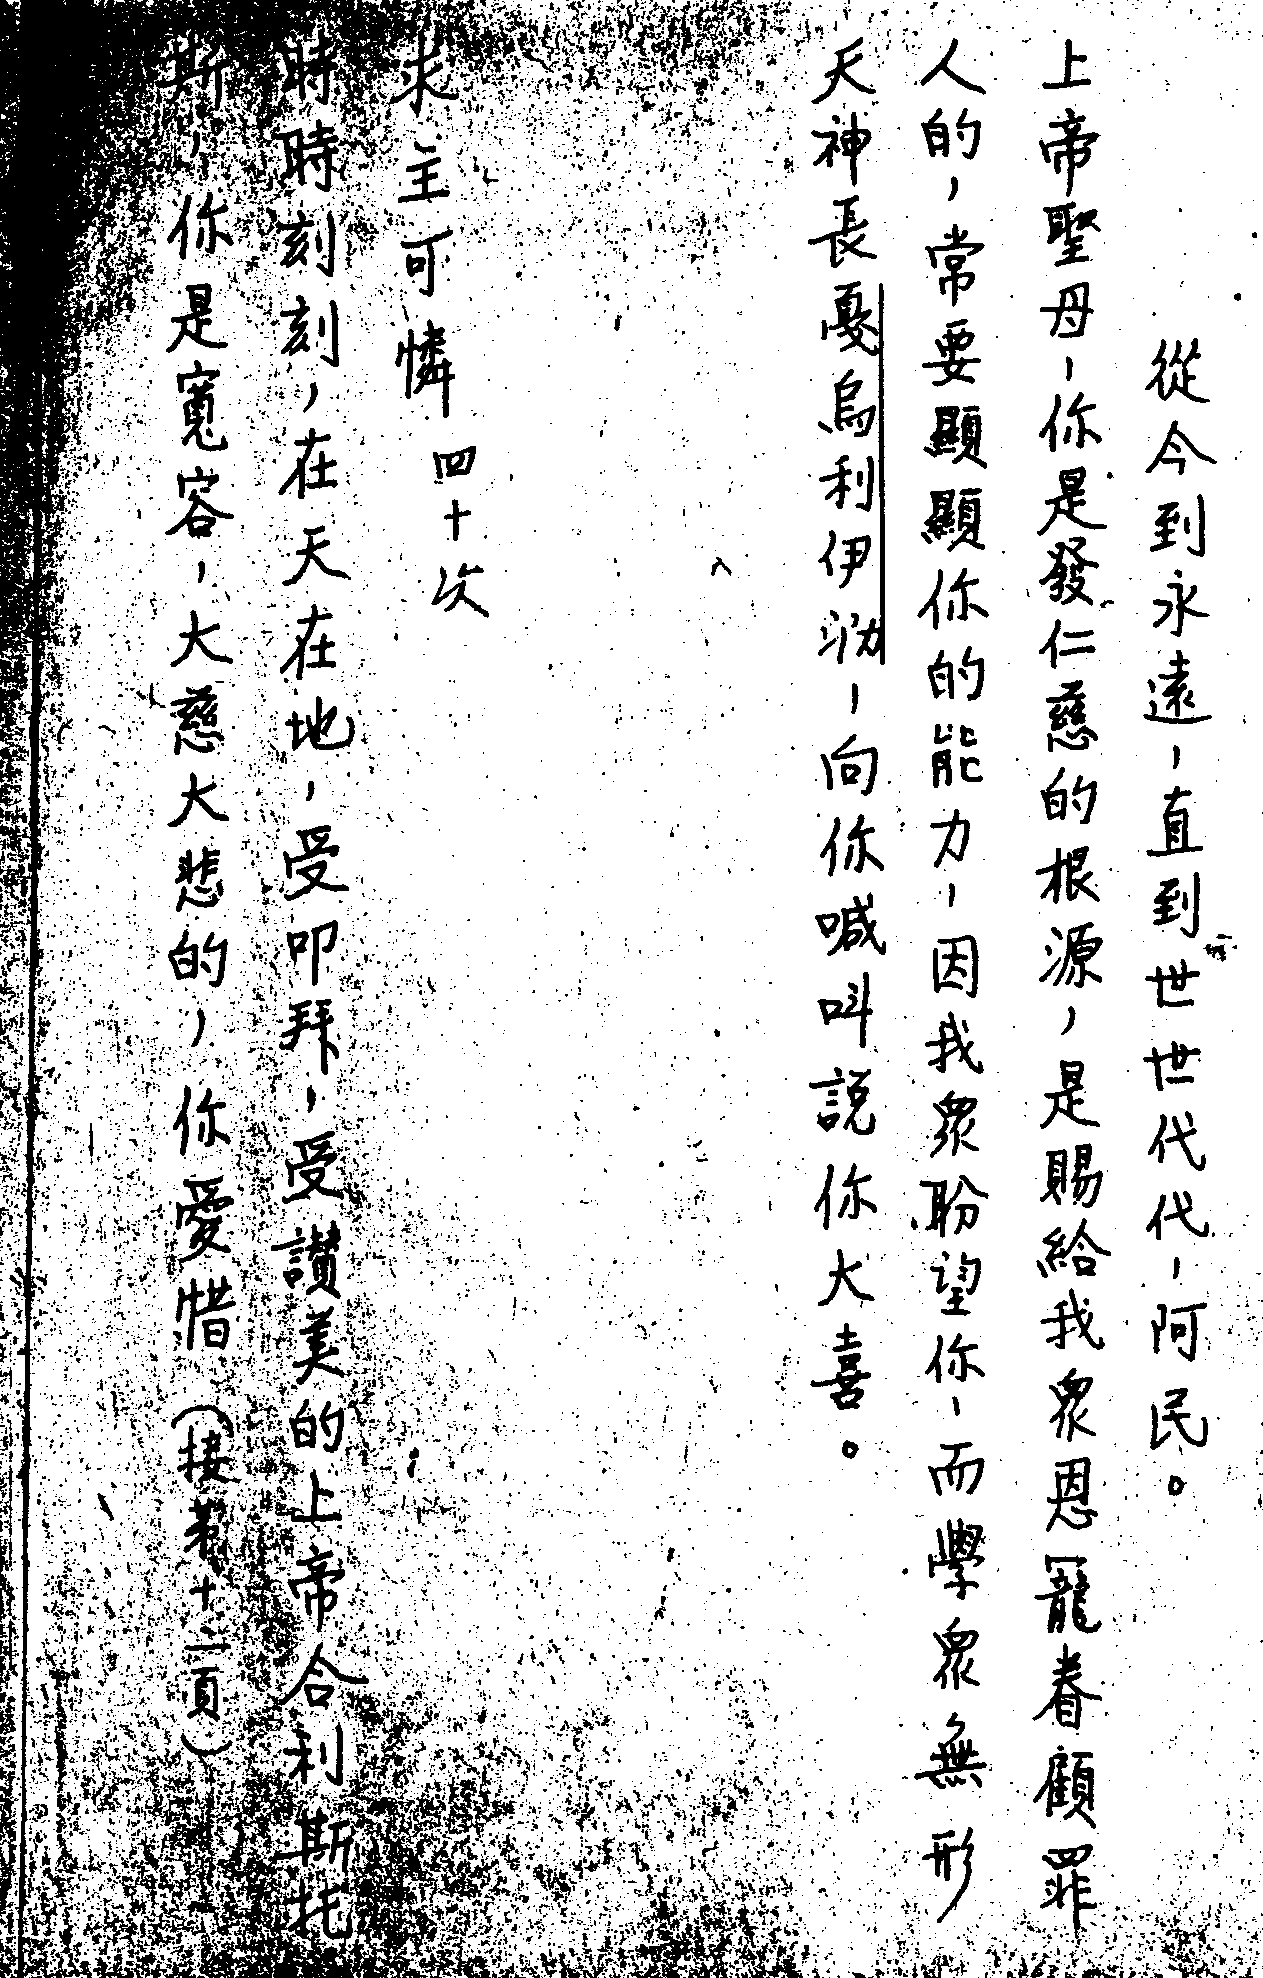 從今到永遠，直到世世代代，阿民。
上帝聖母，你是發仁慈的根源，是賜給我衆恩寵眷顧罪
人的，常要顯顯你的能力，因我衆盼望你，而學衆無形
天神長戛烏利伊泐，向你喊呌說你大喜。
求主可憐 四十次
時時刻刻，在天在地，受叩拜，受讃美的上帝合利斯托
斯，你是寬容，大慈大悲的，你愛惜（接第十二頁）